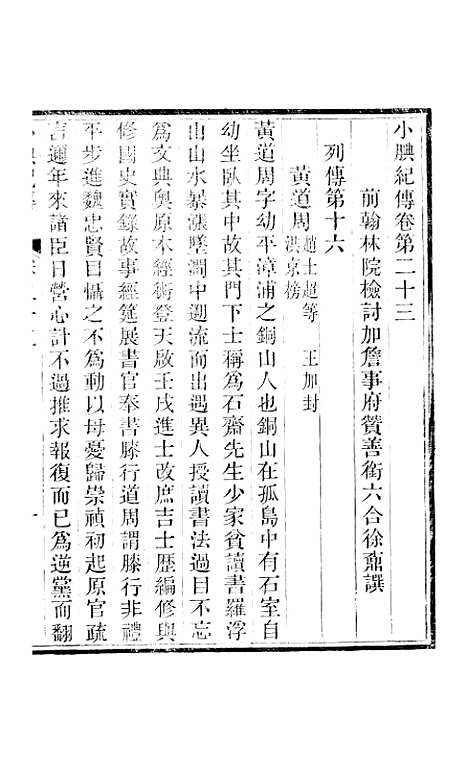 小腆紀傳卷第二十三
前翰林院檢討加詹事府贊善銜六合徐鼒譔
列傳第十六
黃道周 趙士超等 洪京榜 王加封
黃道周字幼平漳浦之銅山人也銅山在孤島中有石室自
幼坐臥其中故其門下士稱爲石齋先生少家貧讀書羅浮
山山水暴漲墜澗中遡流而出遇異人授讀書法過目不忘
爲文典奧原本經術登天啟壬戌進士改庶吉士歷編修與
修國史實錄故事經筵展書官奉書膝行道周謂膝行非禮
平步進魏忠賢目懾之不爲動以母憂歸崇禎初起原官疏
言邇年來諸臣日營心計不過推求報復而已爲逆黨而翻